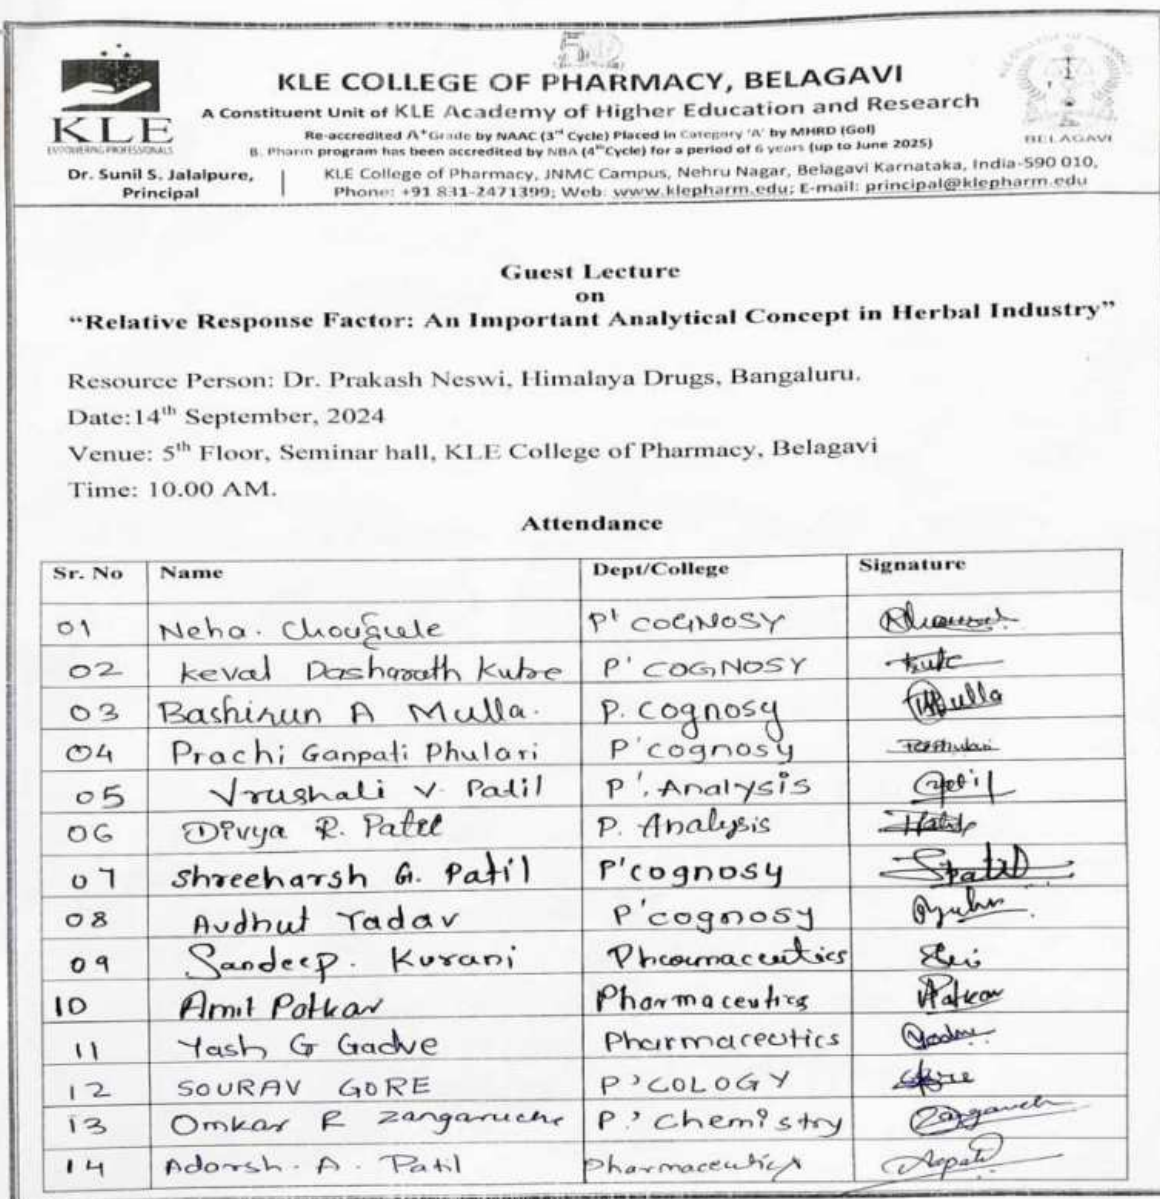 50
KLE COLLEGE OF PHARMACY, BELAGAVI
A Constituent Unit of KLE Academy of Higher Education and Research
Re-accredited A+ Grade by NAAC (3rd Cycle) Placed in Category 'A' by MHRD (GoI)
B. Pharm program has been accredited by NBA (4th Cycle) for a period of 6 years (up to June 2025)
KLE
EMPOWERING PROFESSIONALS
BELAGAVI
Dr. Sunil S. Jalalpure,
Principal
KLE College of Pharmacy, JNMC Campus, Nehru Nagar, Belagavi Karnataka, India-590 010,
Phone: +91 831-2471399; Web: www.klepharm.edu; E-mail: principal@klepharm.edu
Guest Lecture
on
“Relative Response Factor: An Important Analytical Concept in Herbal Industry”
Resource Person: Dr. Prakash Neswi, Himalaya Drugs, Bangaluru.
Date:14th September, 2024
Venue: 5th Floor, Seminar hall, KLE College of Pharmacy, Belagavi
Time: 10.00 AM.
Attendance
Sr. No Name Dept/College Signature
01 Neha. Chougule P' COGNOSY
02 Keval Dasharath Kube P' COGNOSY
03 Bashirun A Mulla. P. Cognosy Mulla
04 Prachi Ganpati Phulari P'cognosy
05 Vrushali V. Patil P'. Analysis
06 Divya R. Patil P. Analysis
07 Shreeharsh G. Patil P'cognosy Spatil
08 Avdhut Yadav P'cognosy
09 Sandeep. Kurani Pharmaceutics
10 Amit Patkar Pharmaceutics Patkar
11 Yash G Gadve Pharmaceutics
12 SOURAV GORE P'COLOGY
13 Omkar R Zanganuche P.' Chemistry
14 Adarsh. A. Patil Pharmaceutics